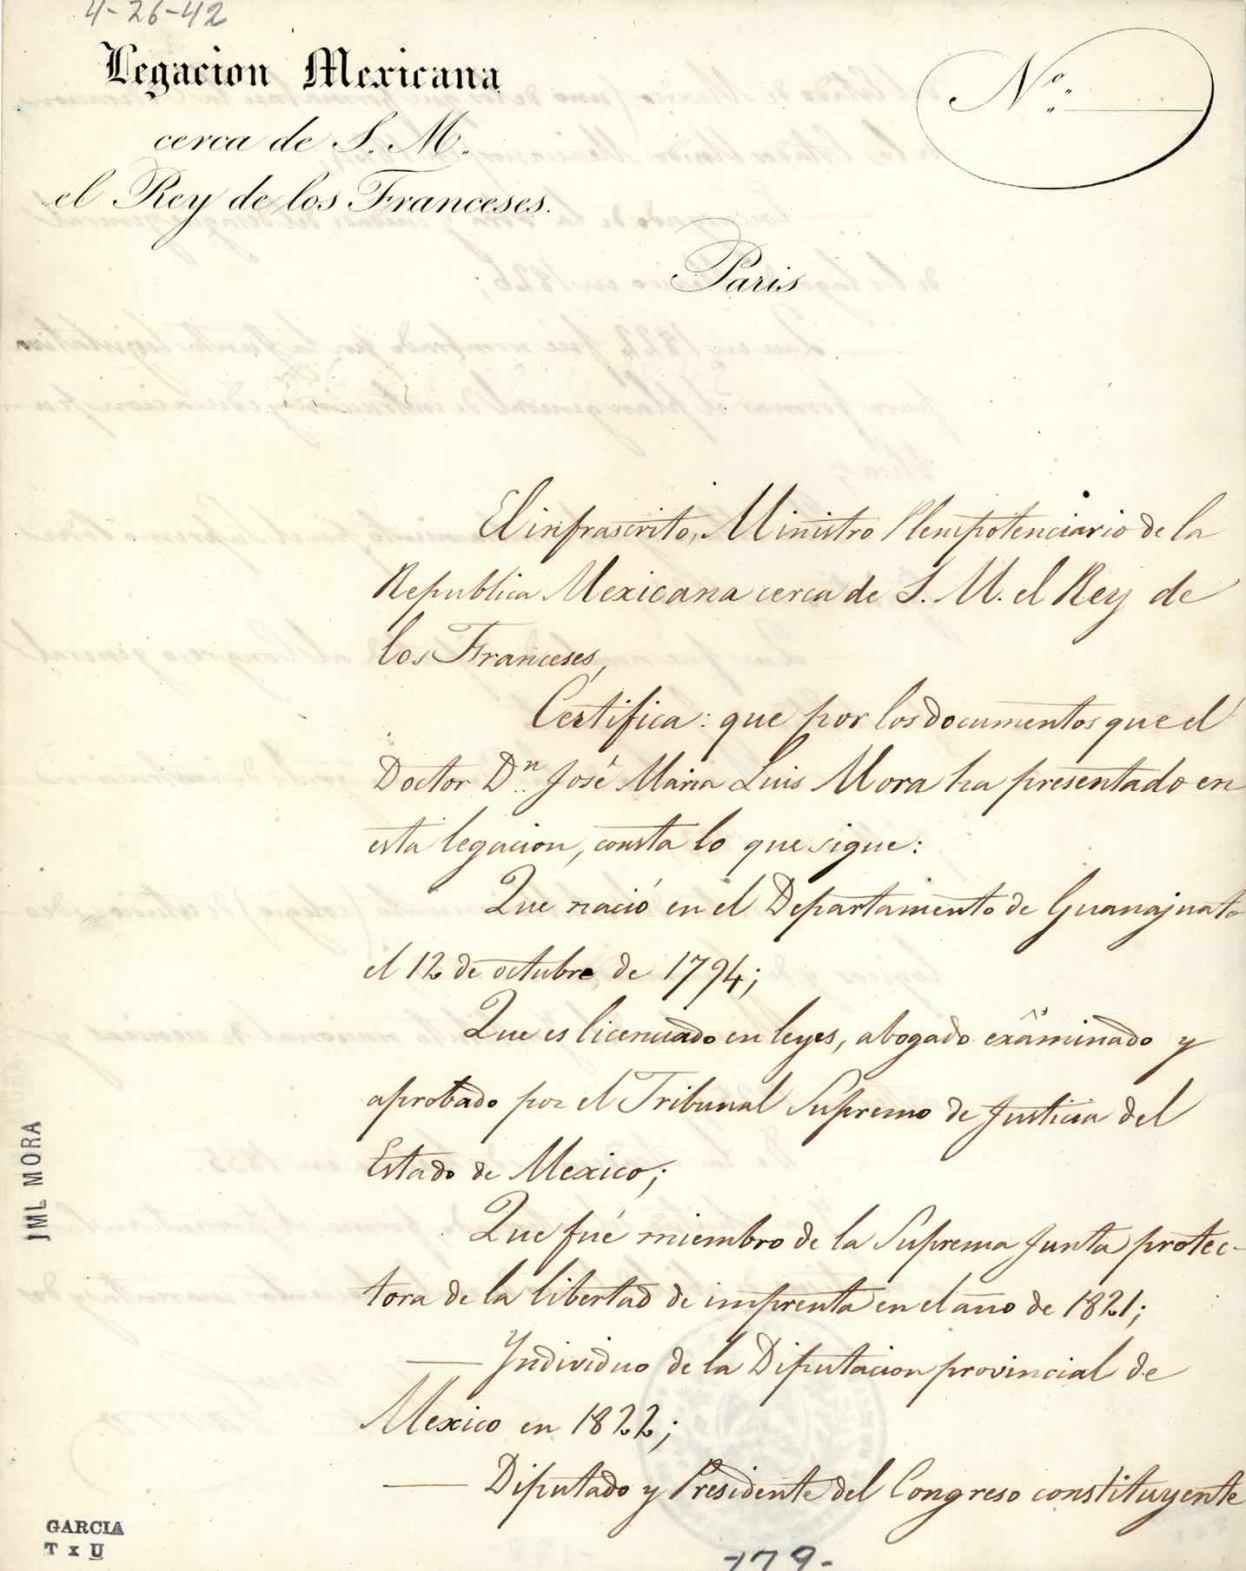 4-26-42
Legacion Mexicana
cerca de S. M.
el Rey de los Franceses.
Nº.
Paris
El infrascrito, Ministro Plenipotenciario de la
Republica Mexicana cerca de S. M. el Rey de
los Franceses,
Certifica: que por los documentos que el
Doctor Dn. José Maria Luis Mora ha presentado en
esta legacion, consta lo que sigue:
Que nació en el Departamento de Guanajuato
el 12 de octubre de 1794;
Que es licenciado en leyes, abogado examinado y
aprobado por el Tribunal Supremo de Justicia del
Estado de Mexico;
Que fué miembro de la Suprema Junta protec-
tora de la libertad de imprenta en el año de 1821;
— Individuo de la Diputacion provincial de
Mexico en 1822;
— Diputado y Presidente del Congreso constituyente
JML MORA
GARCIA
T x U
-179-